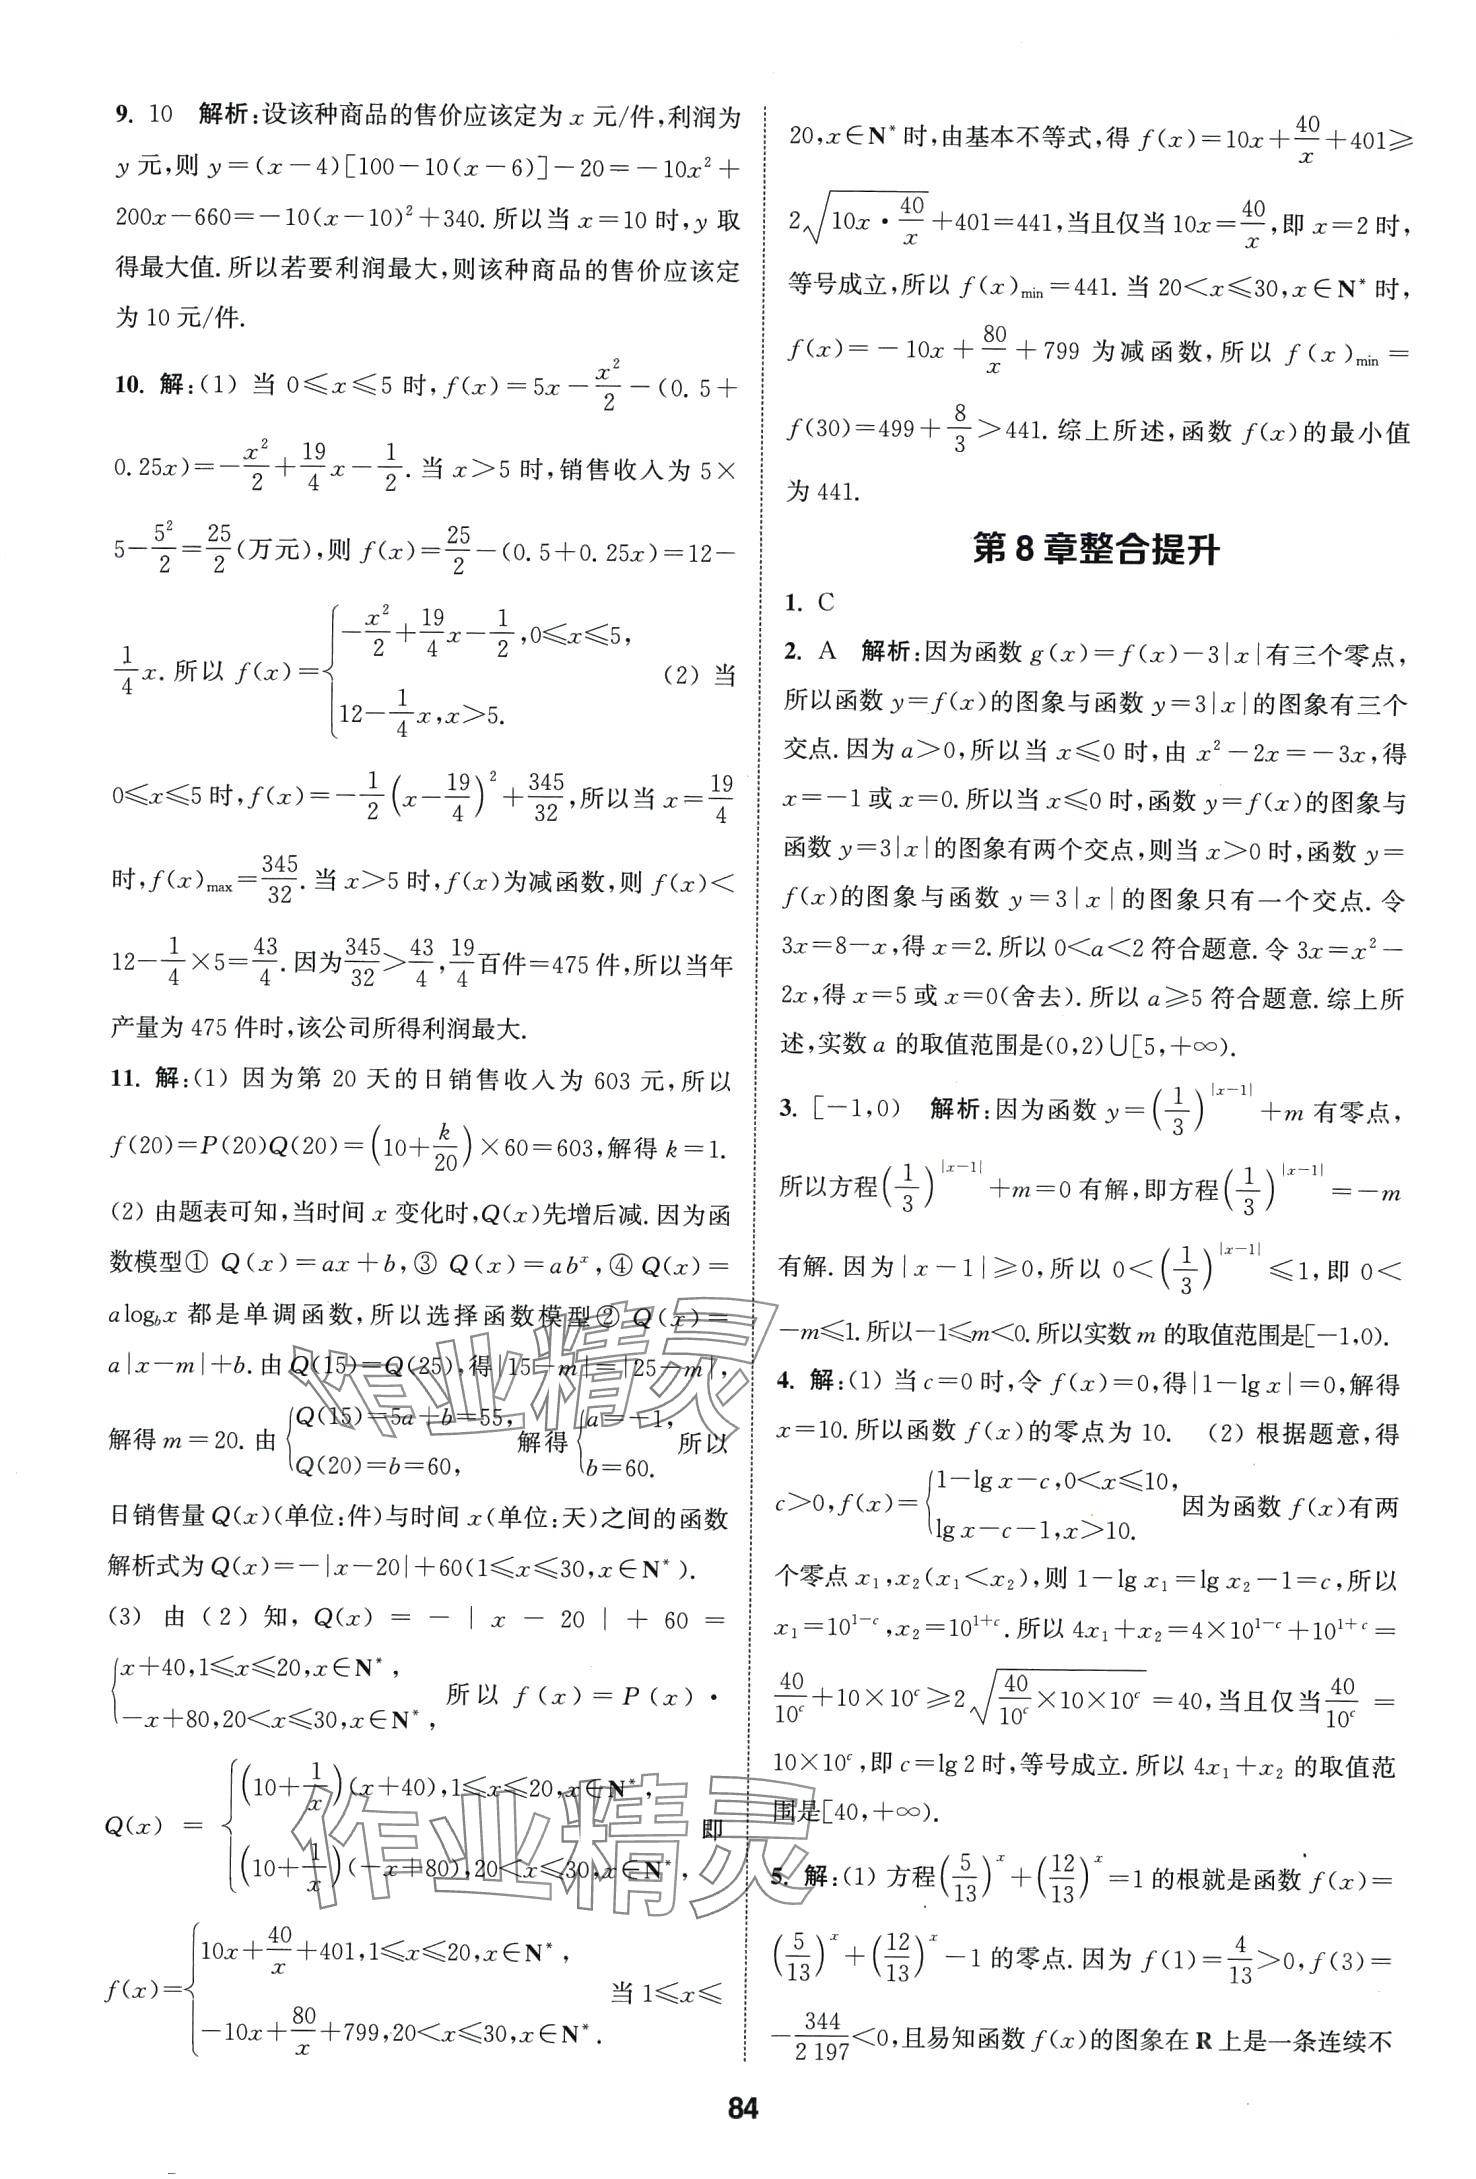 9. 10　解析:设该种商品的售价应该定为 x 元/件,利润为
y 元,则 y=(x-4)[100-10(x-6)]-20=-10x²+
200x-660=-10(x-10)²+340. 所以当 x=10 时,y 取
得最大值. 所以若要利润最大,则该种商品的售价应该定
为 10 元/件.
10. 解:(1) 当 0≤x≤5 时,f(x)=5x-x²/2-(0.5+
0.25x)=-x²/2+19/4x-1/2. 当 x>5 时,销售收入为 5×
5-5²/2=25/2(万元),则 f(x)=25/2-(0.5+0.25x)=12-
1/4x. 所以 f(x)={-x²/2+19/4x-1/2,0≤x≤5, 12-1/4x,x>5. (2) 当
0≤x≤5 时,f(x)=-1/2(x-19/4)²+345/32,所以当 x=19/4
时,f(x)max=345/32. 当 x>5 时,f(x)为减函数,则 f(x)<
12-1/4×5=43/4. 因为345/32>43/4,19/4百件=475 件,所以当年
产量为 475 件时,该公司所得利润最大.
11. 解:(1) 因为第 20 天的日销售收入为 603 元,所以
f(20)=P(20)Q(20)=(10+k/20)×60=603,解得 k=1.
(2) 由题表可知,当时间 x 变化时,Q(x)先增后减. 因为函
数模型① Q(x)=ax+b,③ Q(x)=abˣ,④ Q(x)=
alog_b x 都是单调函数,所以选择函数模型② Q(x)=
a|x-m|+b. 由 Q(15)=Q(25),得|15-m|=|25-m|,
解得 m=20. 由{Q(15)=5a+b=55, Q(20)=b=60, 解得{a=-1, b=60. 所以
日销售量 Q(x)(单位:件)与时间 x(单位:天)之间的函数
解析式为 Q(x)=-|x-20|+60(1≤x≤30,x∈N*).
(3) 由(2)知,Q(x)=-|x-20|+60=
{x+40,1≤x≤20,x∈N*, -x+80,20<x≤30,x∈N*, 所以 f(x)=P(x)·
Q(x)={(10+1/x)(x+40),1≤x≤20,x∈N*, (10+1/x)(-x+80),20<x≤30,x∈N*, 即
f(x)={10x+40/x+401,1≤x≤20,x∈N*, -10x+80/x+799,20<x≤30,x∈N*. 当 1≤x≤
20,x∈N*时,由基本不等式,得 f(x)=10x+40/x+401≥
2√(10x·40/x)+401=441,当且仅当 10x=40/x,即 x=2 时,
等号成立,所以 f(x)min=441. 当 20<x≤30,x∈N*时,
f(x)=-10x+80/x+799 为减函数,所以 f(x)min=
f(30)=499+8/3>441. 综上所述,函数 f(x)的最小值
为 441.
第 8 章整合提升
1. C
2. A　解析:因为函数 g(x)=f(x)-3|x|有三个零点,
所以函数 y=f(x)的图象与函数 y=3|x|的图象有三个
交点. 因为 a>0,所以当 x≤0 时,由 x²-2x=-3x,得
x=-1 或 x=0. 所以当 x≤0 时,函数 y=f(x)的图象与
函数 y=3|x|的图象有两个交点,则当 x>0 时,函数 y=
f(x)的图象与函数 y=3|x|的图象只有一个交点. 令
3x=8-x,得 x=2. 所以 0<a<2 符合题意. 令 3x=x²-
2x,得 x=5 或 x=0(舍去). 所以 a≥5 符合题意. 综上所
述,实数 a 的取值范围是(0,2)∪[5,+∞).
3. [-1,0)　解析:因为函数 y=(1/3)^|x-1|+m 有零点,
所以方程(1/3)^|x-1|+m=0 有解,即方程(1/3)^|x-1|=-m
有解. 因为|x-1|≥0,所以 0<(1/3)^|x-1|≤1,即 0<
-m≤1. 所以-1≤m<0. 所以实数 m 的取值范围是[-1,0).
4. 解:(1) 当 c=0 时,令 f(x)=0,得|1-lg x|=0,解得
x=10. 所以函数 f(x)的零点为 10. (2) 根据题意,得
c>0,f(x)={1-lg x-c,0<x≤10, lg x-c-1,x>10. 因为函数 f(x)有两
个零点 x₁,x₂(x₁<x₂),则 1-lg x₁=lg x₂-1=c,所以
x₁=10^(1-c),x₂=10^(1+c). 所以 4x₁+x₂=4×10^(1-c)+10^(1+c)=
40/10^c+10×10^c≥2√(40/10^c×10×10^c)=40,当且仅当40/10^c=
10×10^c,即 c=lg 2 时,等号成立. 所以 4x₁+x₂ 的取值范
围是[40,+∞).
5. 解:(1) 方程(5/13)ˣ+(12/13)ˣ=1 的根就是函数 f(x)=
(5/13)ˣ+(12/13)ˣ-1 的零点. 因为 f(1)=4/13>0,f(3)=
-344/2 197<0,且易知函数 f(x)的图象在 R 上是一条连续不
84
作业精灵
作业精灵